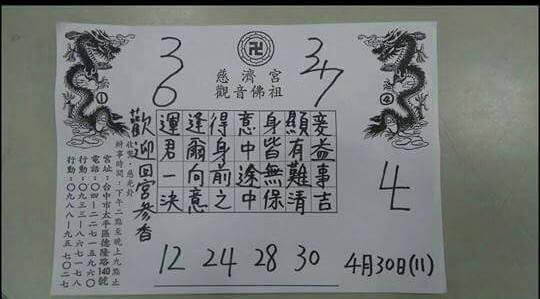 慈濟宮
觀音佛祖
①
3
6
34
7
運逢得意身顯変
君爾身中皆有益
一向前途無難事
決意之中保清吉
歡迎回宮參香
收驚.慈光卦
辦事時間:下午二點至晚上九點止
宮址:台中市太平區德隆路140號
電話:〇四-二二七一五九六〇
行動:
行動:〇九八八-九五七〇二七
4
12 24 28 30 4月30日(11)